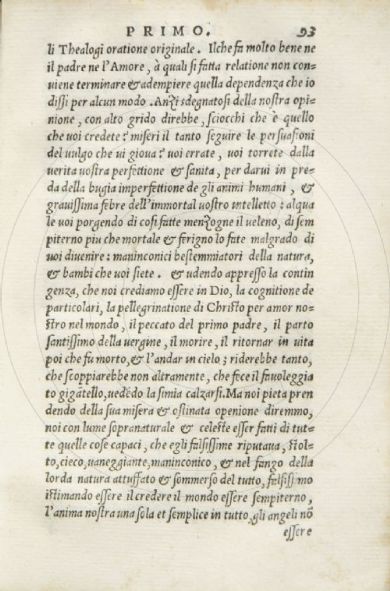 PRIMO. 93
li Thealogi oratione originale. Ilche fa molto bene ne
il padre ne l'Amore, à quali si fatta relatione non con-
uiene terminare & adempiere quella dependenza che io
dissi per alcun modo. Anzi sdegnatosi della nostra opi-
nione, con alto grido direbbe, sciocchi che è quello
che uoi credete? miseri il tanto seguire le persuasioni
del uulgo che ui gioua? uoi errate, uoi torrete dalla
uerita uostra perfettione & sanita, per darui in pre-
da della bugia imperfettione de gli animi humani, &
grauissima febre dell'immortal uostro intelletto: alqua
le uoi porgendo di cosi fatte menzogne il ueleno, di sem
piterno piu che mortale & ferigno lo fate malgrado di
uoi diuenire: maninconici bestemmiatori della natura,
& bambi che uoi siete. & udendo appresso la contin
genza, che noi crediamo essere in Dio, la cognitione de
particolari, la pellegrinatione di Christo per amor no-
stro nel mondo, il peccato del primo padre, il parto
santissimo della uergine, il morire, il ritornar in uita
poi che fu morto, & l'andar in cielo; riderebbe tanto,
che scoppiarebbe non altramente, che fece il fauoleggia
to gigãtello, uedẽdo la simia calzarsi. Ma noi pieta pren
dendo della sua misera & ostinata openione diremmo,
noi con lume sopranaturale & celeste esser fatti di tut-
te quelle cose capaci, che egli falsissime riputaua, stol-
to, cieco, uaneggiante, maninconico, & nel fango della
lorda natura attuffato & sommerso del tutto, falsissimo
istimando essere il credere il mondo essere sempiterno,
l'anima nostra una sola et semplice in tutto, gli angeli nõ
essere